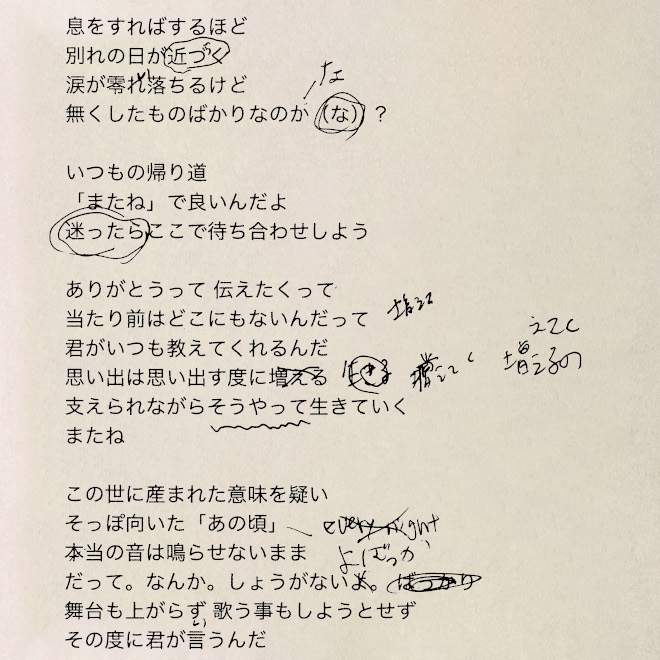 息をすればするほど
別れの日が近づく
涙が零れ落ちるけど
な
無くしたものばかりなのか（な）？
いつもの帰り道
「またね」で良いんだよ
迷ったらここで待ち合わせしよう
ありがとうって 伝えたくって
当たり前はどこにもないんだって
君がいつも教えてくれるんだ
思い出は思い出す度に増える 生きる
えてく
増えるの
支えられながらそうやって生きていく
またね
この世に産まれた意味を疑い
そっぽ向いた「あの頃」 every night
本当の音は鳴らせないまま
だって。なんか。しょうがないよ。 ばっかり
舞台も上がらず 歌う事もしようとせず
その度に君が言うんだ